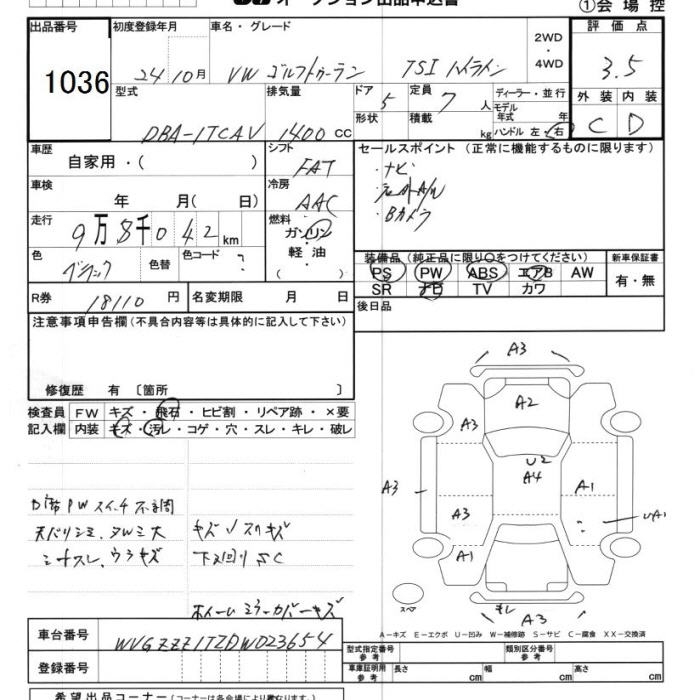 ①会場控
出品番号
1036
初度登録年月
24 10月
車名・グレード
VW ゴルフトゥーラン TSI ハイライン
2WD
・
4WD
評価点
3.5
外装 内装
C D
型式
DBA-1TCAV
排気量
1400 cc
ドア
5
形状
定員
7 人
積載
kg
ディーラー・並行
モデル
年式 年
ハンドル 左・右
車歴
自家用・( )
シフト
FAT
車検
年 月( 日)
冷房
AAC
走行
9万8千042km
燃料
ガソリン
軽油
( )
色
色替
色コード
?
R券
18110 円
名変期限 月 日
セールスポイント (正常に機能するものに限ります)
・ナビ
・Bカメラ
装備品 (純正品に限り○をつけてください)
PS PW ABS エアB AW
SR ナビ TV カワ
新車保証書
有・無
後日品
注意事項申告欄 (不具合内容等は具体的に記入して下さい)
修復歴 有 〔箇所 〕
検査員
記入欄
FW キズ・飛石・ヒビ割・リペア跡・×要
内装 キズ・汚レ・コゲ・穴・スレ・キレ・破レ
天バリシミ、
シートスレ、ウラキズ
下廻りSC
ホイール ミラーカバーキズ
A3
A2
A3
U2
A4
A1
A3
A3
UA1
A3
A1
スペア
A3
A-キズ E-エクボ U-凹み W-補修跡 S-サビ C-腐食 XX-交換済
車台番号
WVGZZZ1TZDW023654
登録番号
型式指定番号
参考
類別区分番号
参考
車庫証明用
参考
長さ cm
幅 cm
高さ cm
希望出品コーナー (コーナーは各会場により異なります)